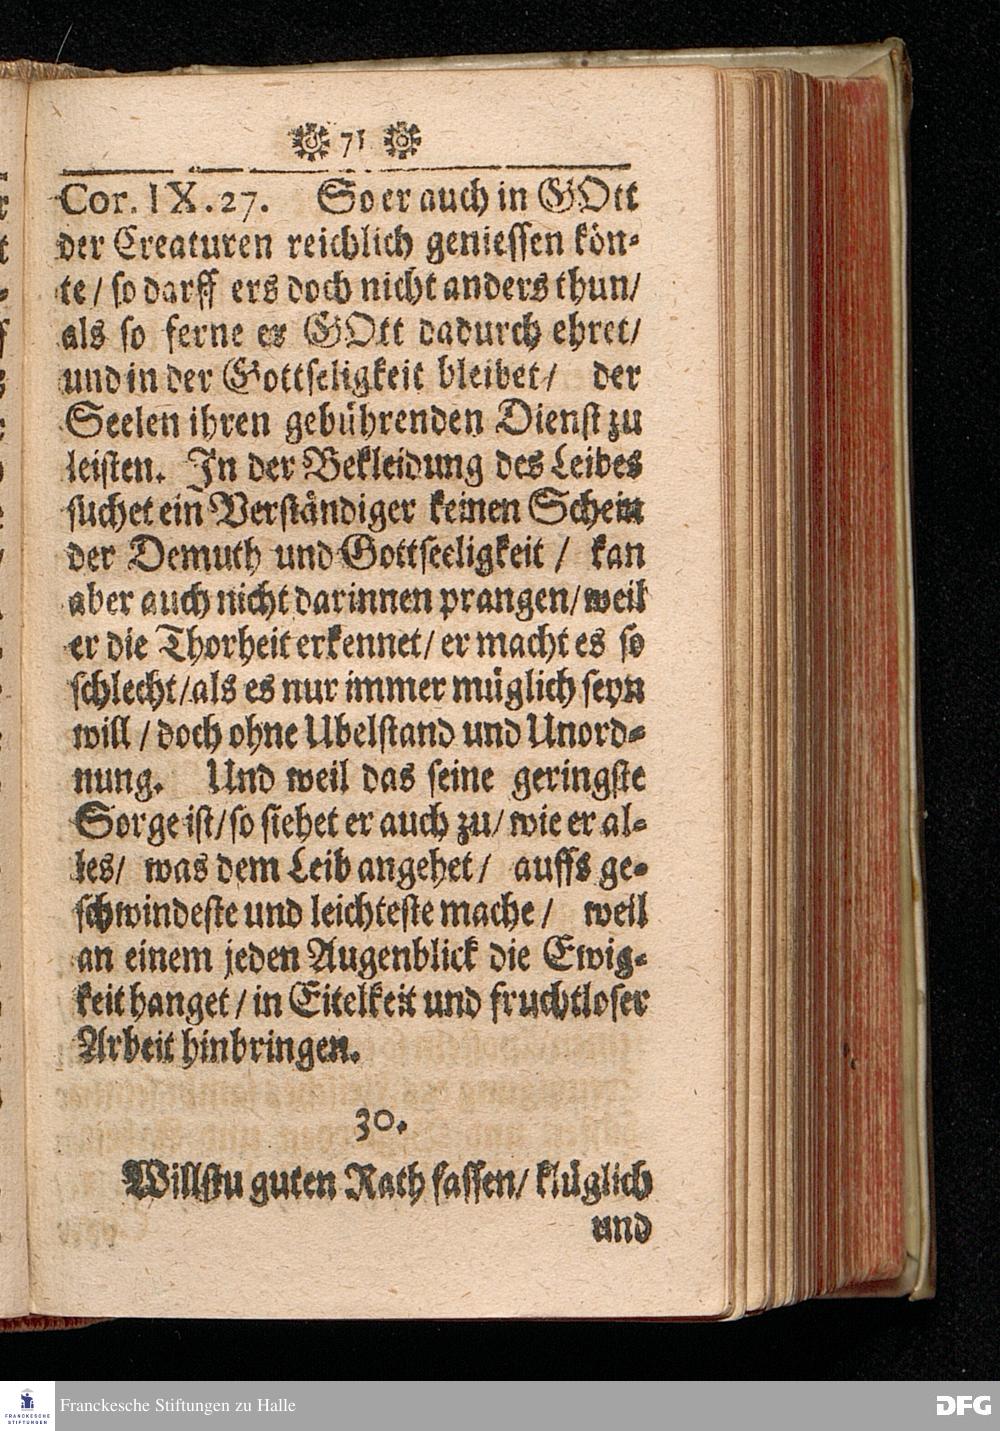 71
Cor. IX. 27. So er auch in GOtt
der Creaturen reichlich geniessen kön-
te / so darff ers doch nicht anders thun /
als so ferne er GOtt dadurch ehret /
und in der Gottseligkeit bleibet / der
Seelen ihren gebührenden Dienst zu
leisten. In der Bekleidung des Leibes
suchet ein Verständiger keinen Schein
der Demuth und Gottseeligkeit / kan
aber auch nicht darinnen prangen / weil
er die Thorheit erkennet / er macht es so
schlecht / als es nur immer müglich seyn
will / doch ohne Ubelstand und Unord-
nung. Und weil das seine geringste
Sorge ist / so siehet er auch zu / wie er al-
les / was dem Leib angehet / auffs ge-
schwindeste und leichteste mache / weil
an einem jeden Augenblick die Ewig-
keit hanget / in Eitelkeit und fruchtloser
Arbeit hinbringen.
30.
Willstu guten Rath fassen / klüglich
und
FRANCKESCHE
STIFTUNGEN
Franckesche Stiftungen zu Halle
DFG